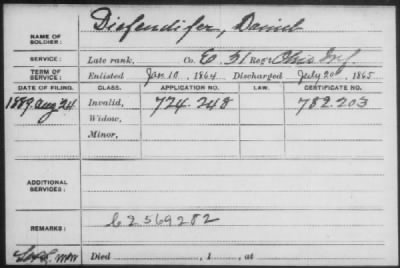 NAME OF SOLDIER: Diefendifer, David
SERVICE: Late rank, Co. E. 31 Reg't Ohio Inf.
TERM OF SERVICE: Enlisted Jan. 10, 1864 Discharged July 20, 1865
DATE OF FILING. CLASS. APPLICATION NO. LAW. CERTIFICATE NO.
1889. Aug 24 Invalid, 724.248 782.203
Widow,
Minor,
ADDITIONAL SERVICES:
REMARKS: C2569282
Died , 1 , at